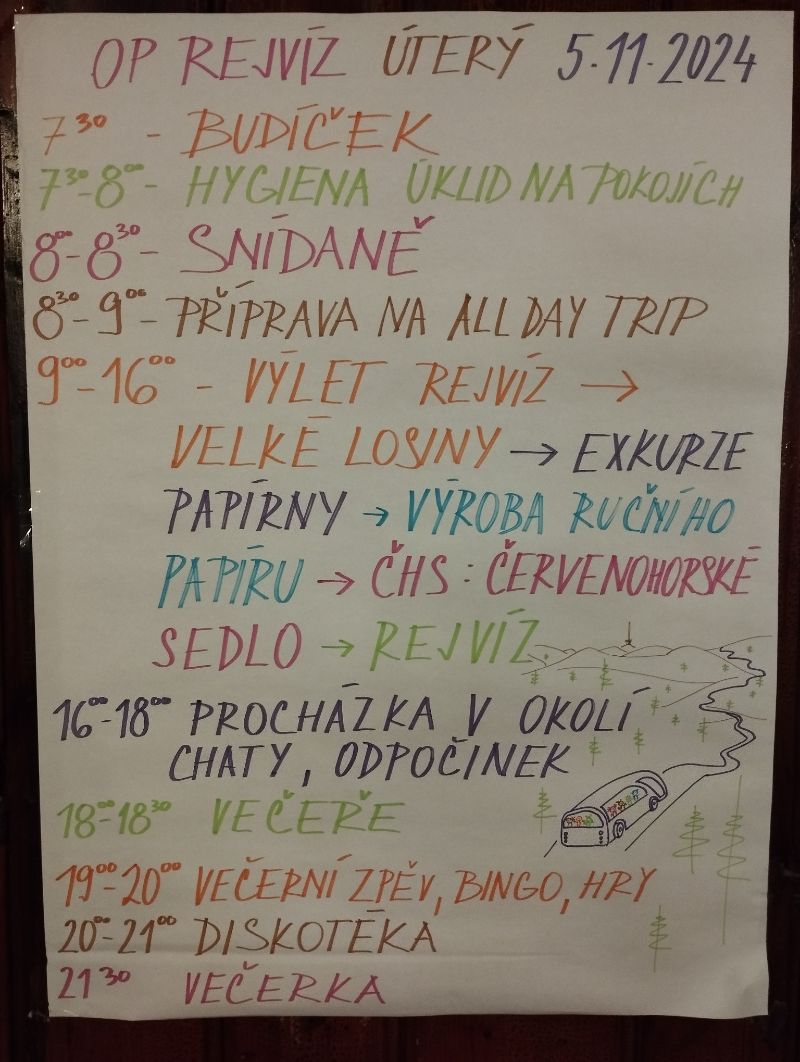 OP REJVÍZ ÚTERÝ 5.11.2024
7³⁰ - BUDÍČEK
7³⁰-8⁰⁰- HYGIENA ÚKLID NA POKOJÍCH
8⁰⁰-8³⁰- SNÍDANĚ
8³⁰-9⁰⁰- PŘÍPRAVA NA ALL DAY TRIP
9⁰⁰-16⁰⁰ - VÝLET REJVÍZ →
VELKÉ LOSINY → EXKURZE
PAPÍRNY → VÝROBA RUČNÍHO
PAPÍRU → ČHS: ČERVENOHORSKÉ
SEDLO → REJVÍZ
16⁰⁰-18⁰⁰ PROCHÁZKA V OKOLÍ
CHATY, ODPOČINEK
18⁰⁰-18³⁰ VEČEŘE
19⁰⁰-20⁰⁰ VEČERNÍ ZPĚV, BINGO, HRY
20⁰⁰-21⁰⁰ DISKOTÉKA
21³⁰ VEČERKA